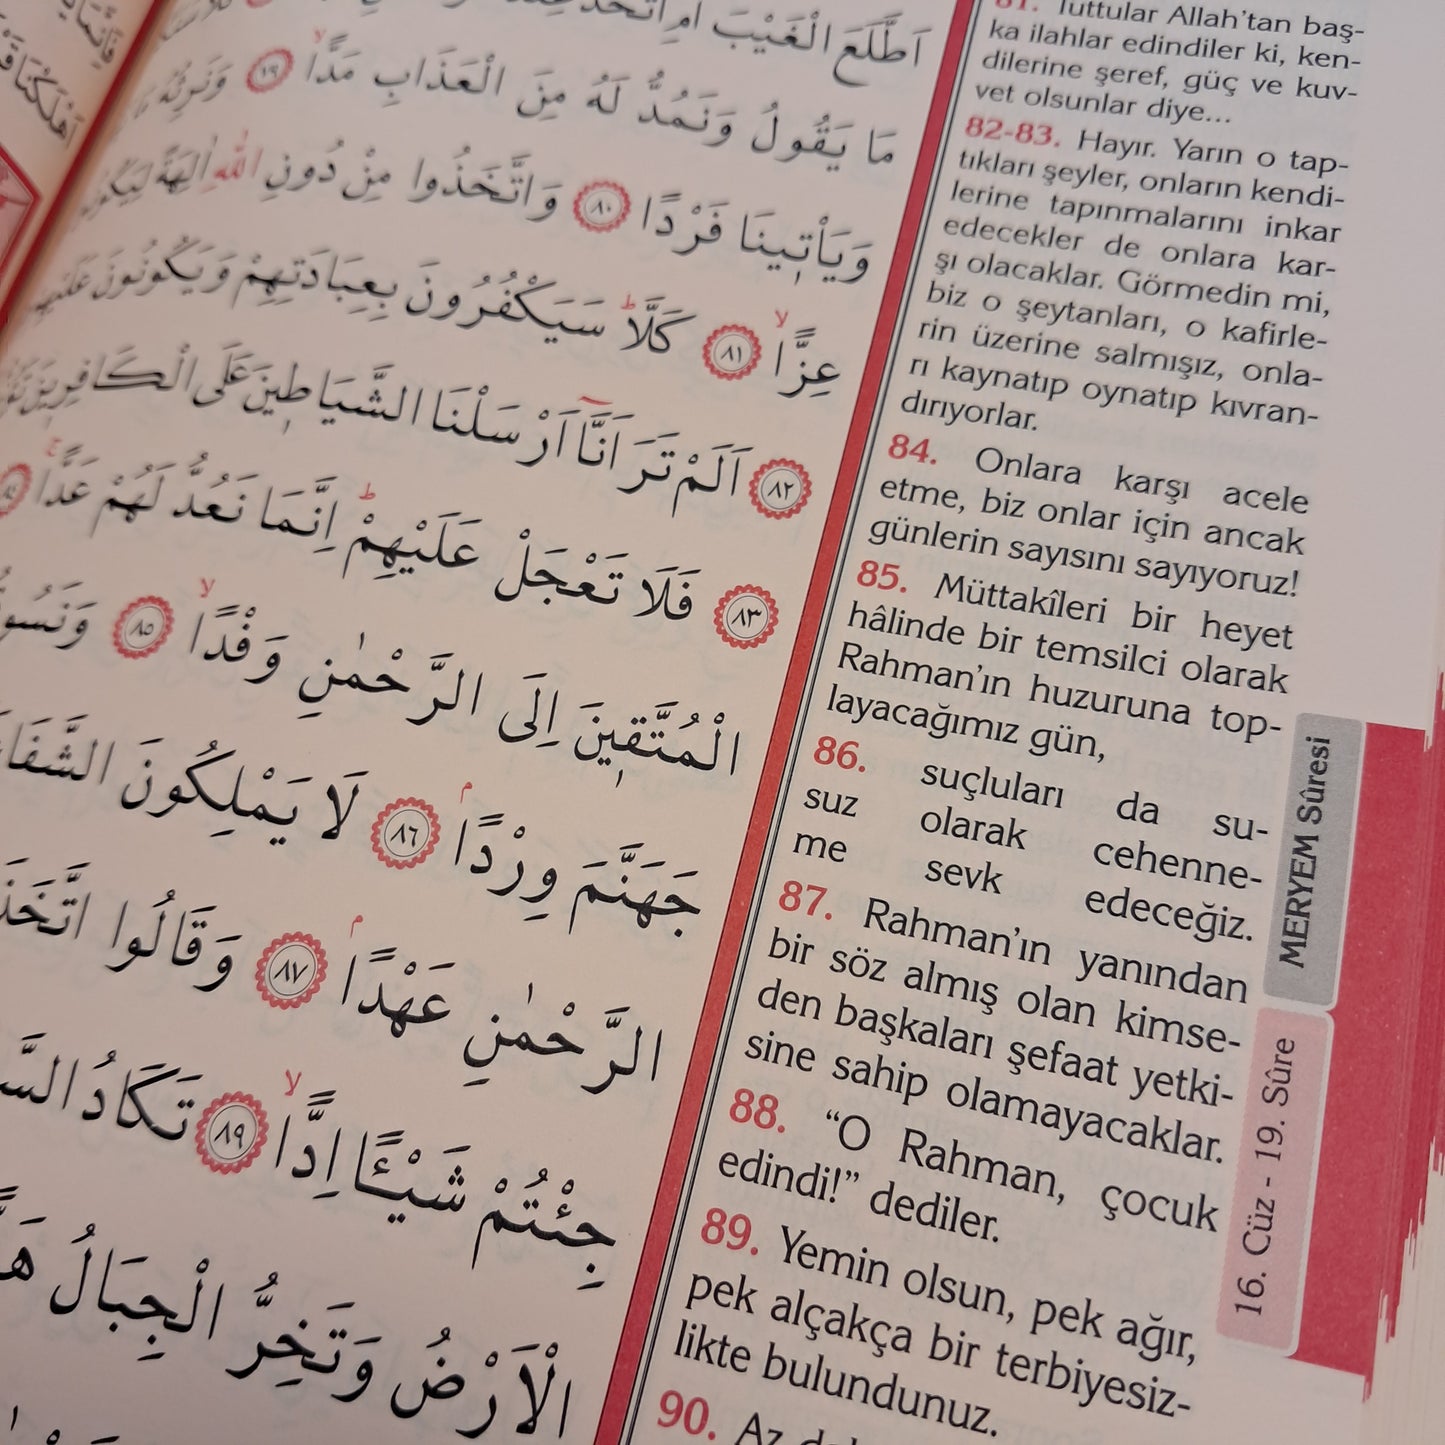 اَطَّلَعَ الْغَيْبَ اَمِ اتَّخَذَ
مَا يَقُولُ وَنَمُدُّ لَهُ مِنَ الْعَذَابِ مَدًّاۙ ﴿٧٩﴾ وَنَرِثُهُ
وَيَأْت۪ينَا فَرْدًا ﴿٨٠﴾ وَاتَّخَذُوا مِنْ دُونِ اللّٰهِ اٰلِهَةً لِيَكُونُوا
عِزًّاۙ ﴿٨١﴾ كَلَّاۜ سَيَكْفُرُونَ بِعِبَادَتِهِمْ وَيَكُونُونَ عَلَيْهِمْ
﴿٨٢﴾ اَلَمْ تَرَ اَنَّٓا اَرْسَلْنَا الشَّيَاط۪ينَ عَلَى الْكَافِر۪ينَ
﴿٨٣﴾ فَلَا تَعْجَلْ عَلَيْهِمْۜ اِنَّمَا نَعُدُّ لَهُمْ عَدًّاۚ ﴿٨٤﴾
الْمُتَّق۪ينَ اِلَى الرَّحْمٰنِ وَفْدًاۙ ﴿٨٥﴾
جَهَنَّمَ وِرْدًاۢ ﴿٨٦﴾ لَا يَمْلِكُونَ
الرَّحْمٰنِ عَهْدًاۢ ﴿٨٧﴾ وَقَالُوا
جِئْتُمْ شَيْـًٔا اِدًّاۙ ﴿٨٩﴾ تَكَادُ
الْاَرْضُ وَتَخِرُّ الْجِبَالُ
81. Tuttular Allah’tan baş-
ka ilahlar edindiler ki, ken-
dilerine şeref, güç ve kuv-
vet olsunlar diye...
82-83. Hayır. Yarın o tap-
tıkları şeyler, onların kendi-
lerine tapınmalarını inkar
edecekler de onlara kar-
şı olacaklar. Görmedin mi,
biz o şeytanları, o kafirle-
rin üzerine salmışız, onla-
rı kaynatıp oynatıp kıvran-
dırıyorlar.
84. Onlara karşı acele
etme, biz onlar için ancak
günlerin sayısını sayıyoruz!
85. Müttakîleri bir heyet
hâlinde bir temsilci olarak
Rahman’ın huzuruna top-
layacağımız gün,
86. suçluları da su-
suz olarak cehenne-
me sevk edeceğiz.
87. Rahman’ın yanından
bir söz almış olan kimse-
den başkaları şefaat yetki-
sine sahip olamayacaklar.
88. “O Rahman, çocuk
edindi!” dediler.
89. Yemin olsun, pek ağır,
pek alçakça bir terbiyesiz-
likte bulundunuz.
90. Az
MERYEM Sûresi
16. Cüz - 19. Sûre